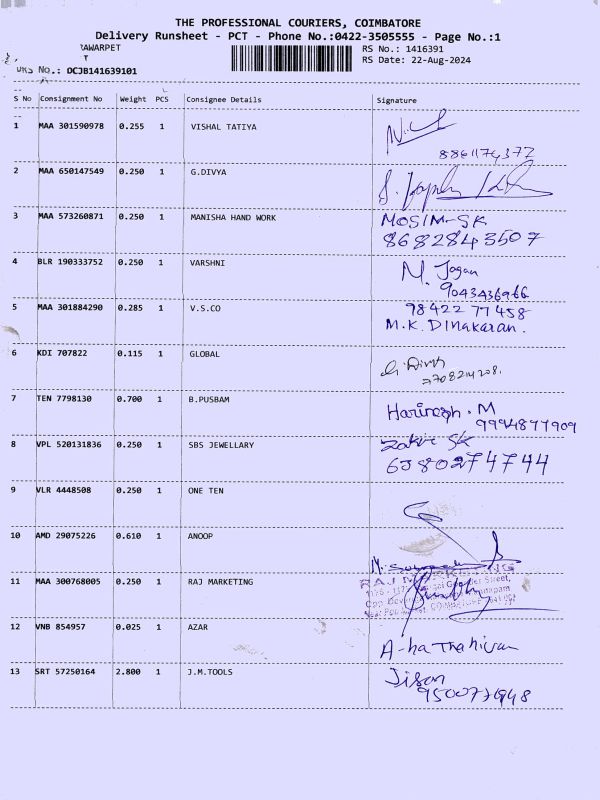 THE PROFESSIONAL COURIERS, COIMBATORE
Delivery Runsheet - PCT - Phone No.:0422-3505555 - Page No.:1
AWARPET
RS No.: 1416391
T
RS Date: 22-Aug-2024
No.: DCJB141639101
S No Consignment No Weight PCS Consignee Details Signature
1 MAA 301590978 0.255 1 VISHAL TATIYA
8861174372
2 MAA 650147549 0.250 1 G.DIVYA
3 MAA 573260871 0.250 1 MANISHA HAND WORK MOSIM-SK
8682843507
4 BLR 190333752 0.250 1 VARSHNI M. Jagan
9043436966
5 MAA 301884290 0.285 1 V.S.CO 98422 77458
M.K. DINakaran.
6 KDI 707822 0.115 1 GLOBAL
7 TEN 7798130 0.700 1 B.PUSBAM Harinesh. M
9994877909
8 VPL 520131836 0.250 1 SBS JEWELLARY SK
6380274744
9 VLR 4448508 0.250 1 ONE TEN
10 AMD 29075226 0.610 1 ANOOP
11 MAA 300768005 0.250 1 RAJ MARKETING
12 VNB 854957 0.025 1 AZAR
13 SRT 57250164 2.800 1 J.M.TOOLS Jison